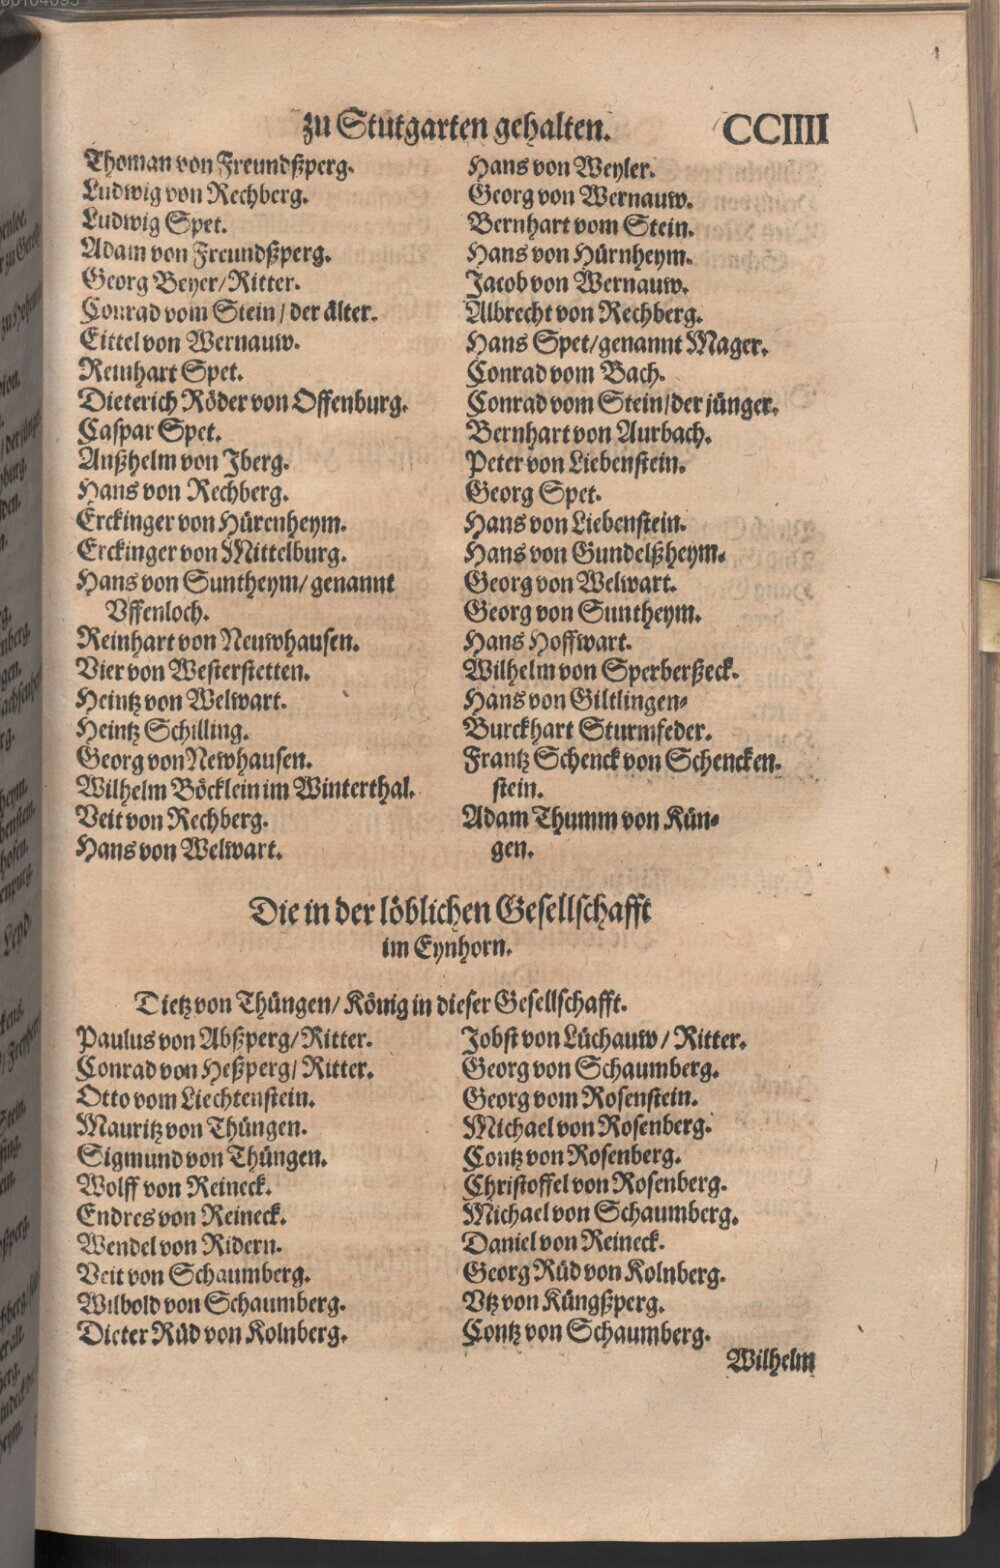 zu Stutgarten gehalten. CCIIII
Thoman von Freundßperg.
Ludwig von Rechberg.
Ludwig Spet.
Adam von Freundßperg.
Georg Beyer/Ritter.
Conrad vom Stein/der älter.
Eittel von Wernauw.
Reinhart Spet.
Dieterich Röder von Offenburg.
Caspar Spet.
Anßhelm von Jberg.
Hans von Rechberg.
Erckinger von Hürenheym.
Erckinger von Mittelburg.
Hans von Suntheym/genannt
Vffenloch.
Reinhart von Neuwhausen.
Vier von Westerstetten.
Heintz von Welwart.
Heintz Schilling.
Georg von Newhausen.
Wilhelm Böcklein im Winterthal.
Veit von Rechberg.
Hans von Welwart.
Hans von Weyler.
Georg von Wernauw.
Bernhart vom Stein.
Hans von Hürnheym.
Jacob von Wernauw.
Albrecht von Rechberg.
Hans Spet/genannt Mager.
Conrad vom Bach.
Conrad vom Stein/der jünger.
Bernhart von Aurbach.
Peter von Liebenstein.
Georg Spet.
Hans von Liebenstein.
Hans von Gundelßheym.
Georg von Welwart.
Georg von Suntheym.
Hans Hoffwart.
Wilhelm von Sperberßeck.
Hans von Giltlingen.
Burckhart Sturmfeder.
Frantz Schenck von Schencken.
stein.
Adam Thumm von Kün-
gen.
Die in der löblichen Gesellschafft
im Eynhorn.
Dietz von Thüngen/König in dieser Gesellschafft.
Paulus von Abßperg/Ritter.
Conrad von Heßperg/Ritter.
Otto vom Liechtenstein.
Mauritz von Thüngen.
Sigmund von Thüngen.
Wolff von Reineck.
Endres von Reineck.
Wendel von Ridern.
Veit von Schaumberg.
Wilbold von Schaumberg.
Dieter Rüd von Kolnberg.
Jobst von Lüchauw/Ritter.
Georg von Schaumberg.
Georg vom Rosenstein.
Michael von Rosenberg.
Contz von Rosenberg.
Christoffel von Rosenberg.
Michael von Schaumberg.
Daniel von Reineck.
Georg Rüd von Kolnberg.
Vtz von Küngßperg.
Contz von Schaumberg.
Wilhelm